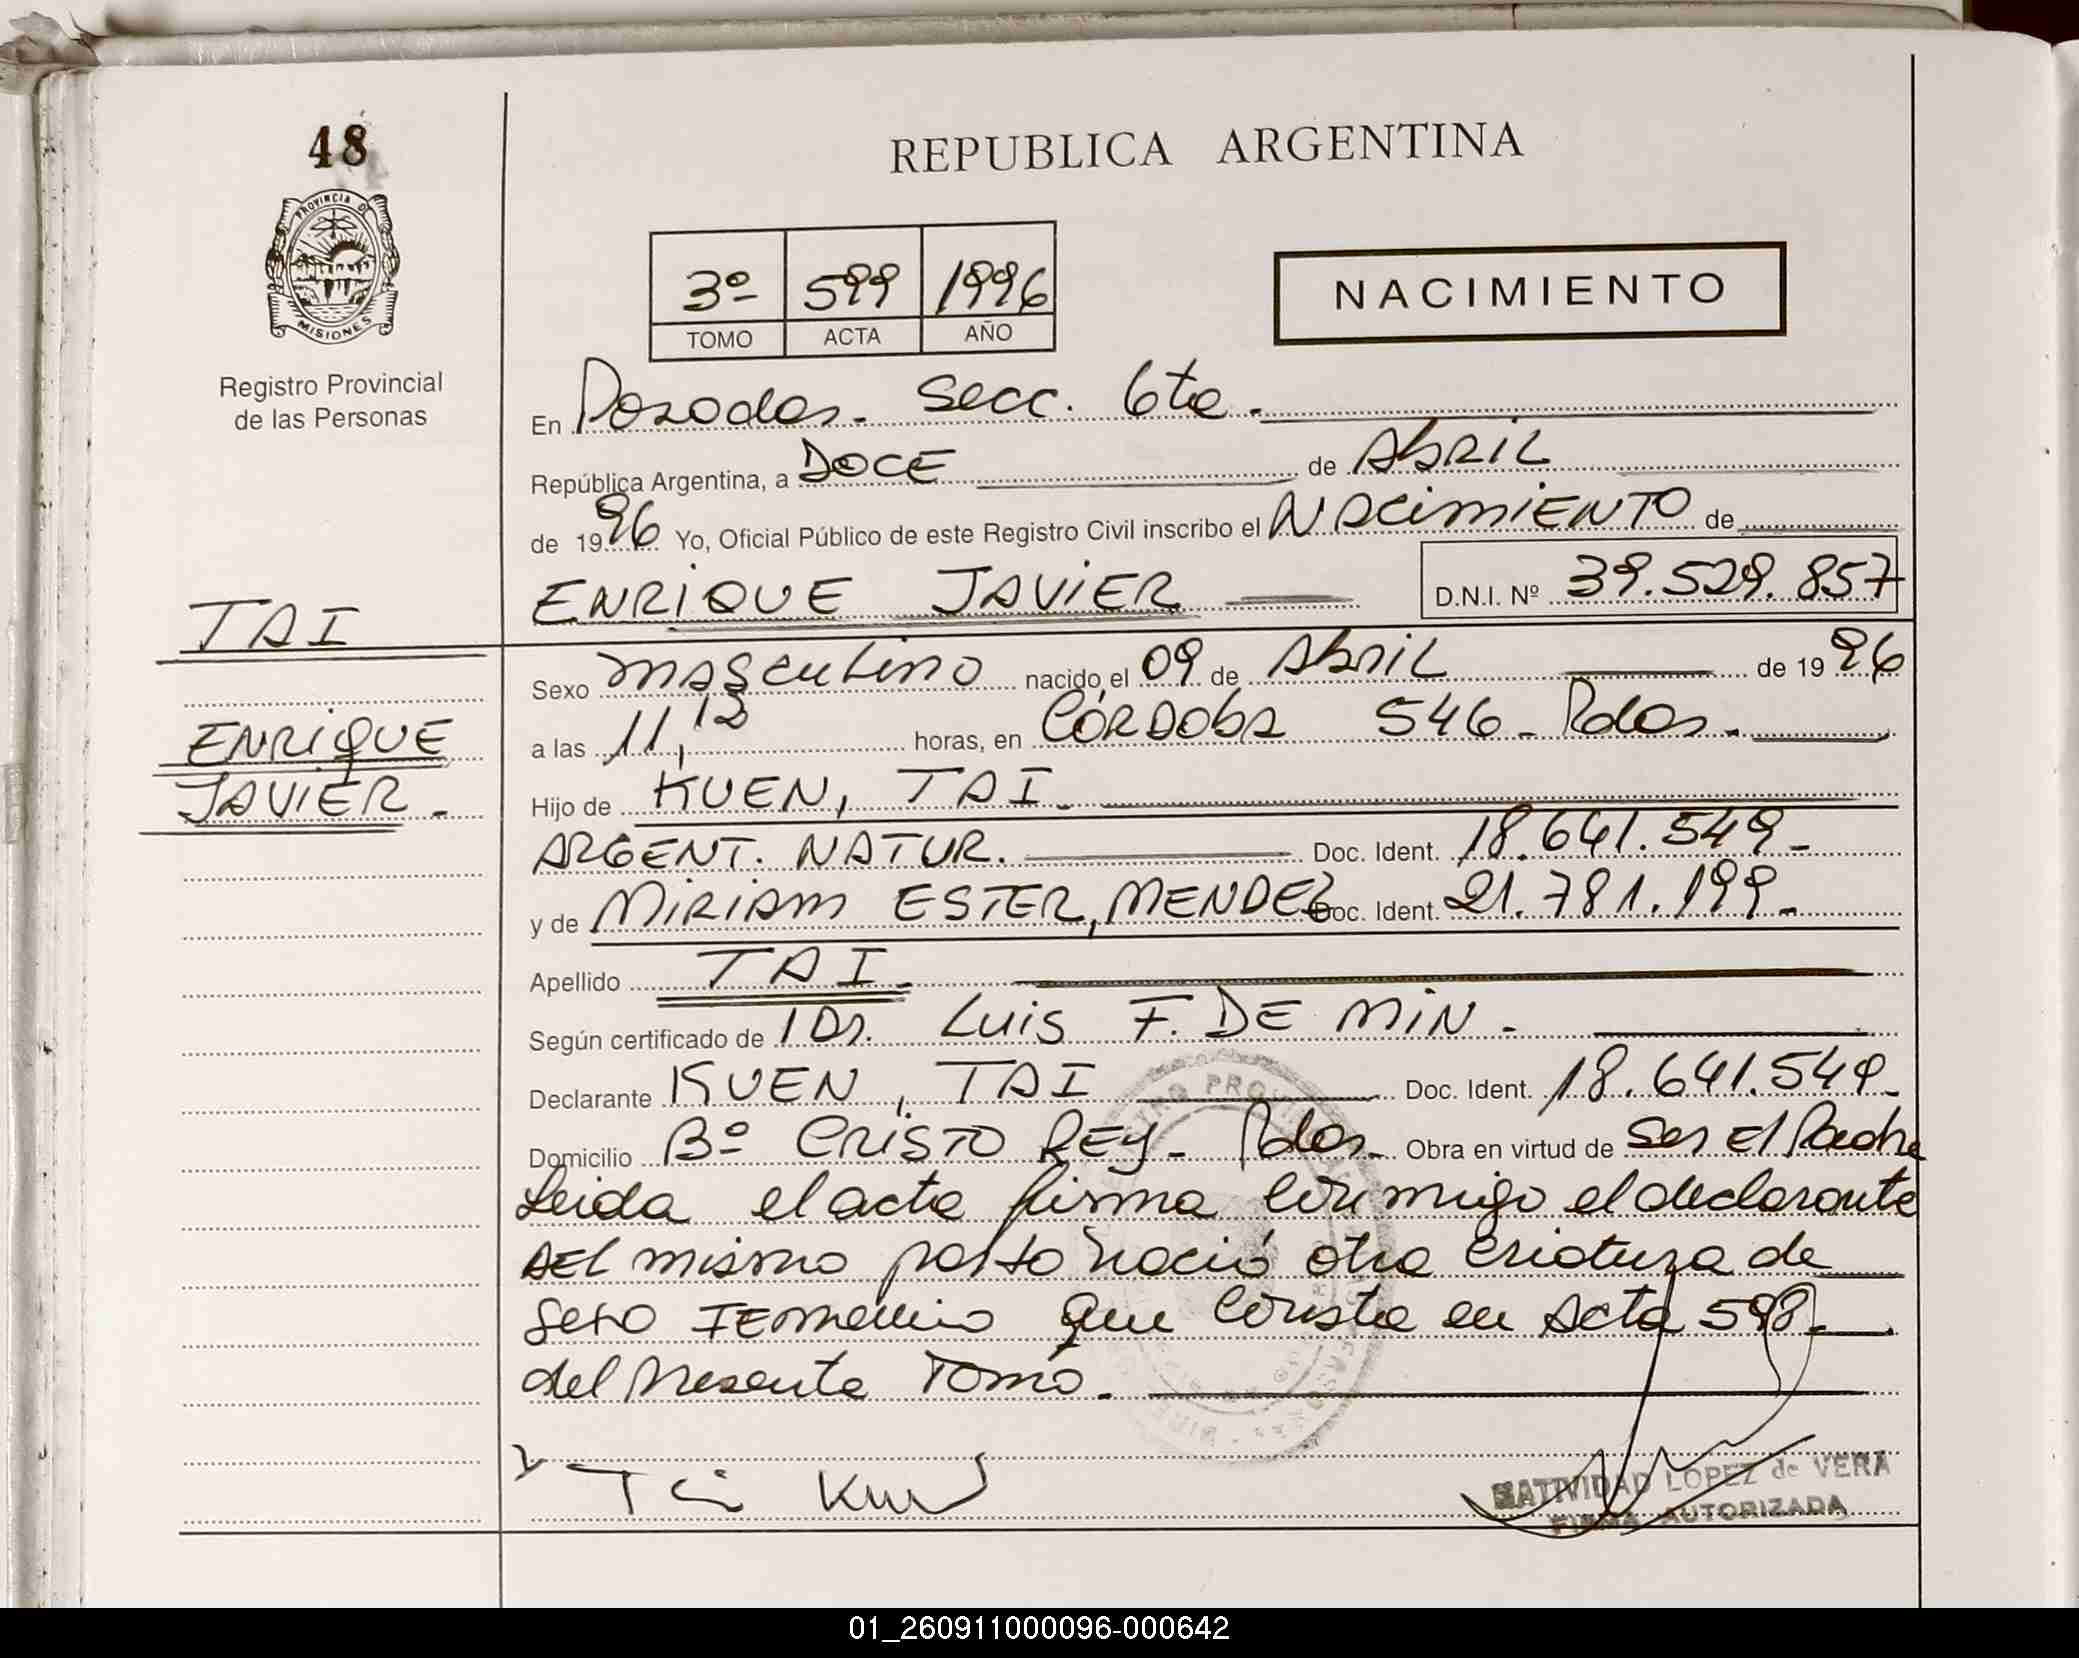 48
REPUBLICA ARGENTINA
PROVINCIA DE
MISIONES
Registro Provincial
de las Personas
3º 599 1996
TOMO ACTA AÑO
NACIMIENTO
En Posadas. Secc. 6ta.
República Argentina, a DOCE de Abril
de 1996 Yo, Oficial Público de este Registro Civil inscribo el NACIMIENTO de
ENRIQUE JAVIER D.N.I. Nº 39.529.857
TAI
Sexo masculino nacido el 09 de Abril de 1996
ENRIQUE
a las 11,13 horas, en CÓRDOBA 546 - Pdas.
JAVIER.-
Hijo de KUEN, TAI.
ARGENT. NATUR. Doc. Ident. 18.641.549-
y de MIRIAM ESTER, MENDEZ Doc. Ident. 21.781.199.-
Apellido TAI.
Según certificado de l Dr. Luis F. DE MIN.-
Declarante KUEN, TAI Doc. Ident. 18.641.549-
Domicilio Bº CRISTO REY- Pdas. Obra en virtud de Ser El Padre
Leida el acta firma conmigo el declarante
DEL mismo parto nació otra criatura de
sexo FEmenino que consta en Acta 598.-
del Presente Tomo.-
Tai Kuen
NATIVIDAD LOPEZ de VERA
FIRMA AUTORIZADA
01_260911000096-000642